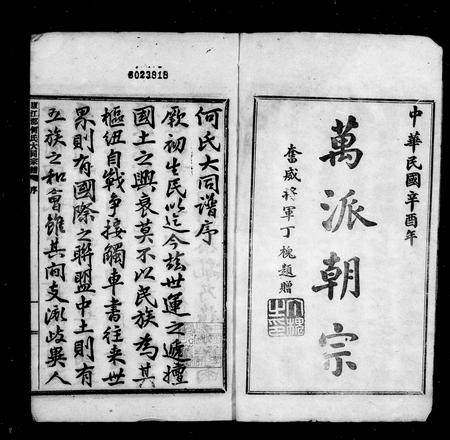 6023818
中華民國辛酉年
萬派朝宗
奮威將軍丁槐題贈
何氏大同譜序
厥初生民以迄今茲世運之遞擅
國土之興衰莫不以民族為其
樞紐自戰爭接觸車書往来世
界則有國際之聯盟中土則有
五族之和會雖其間支派歧異人
廬江郡何氏大同宗譜 序